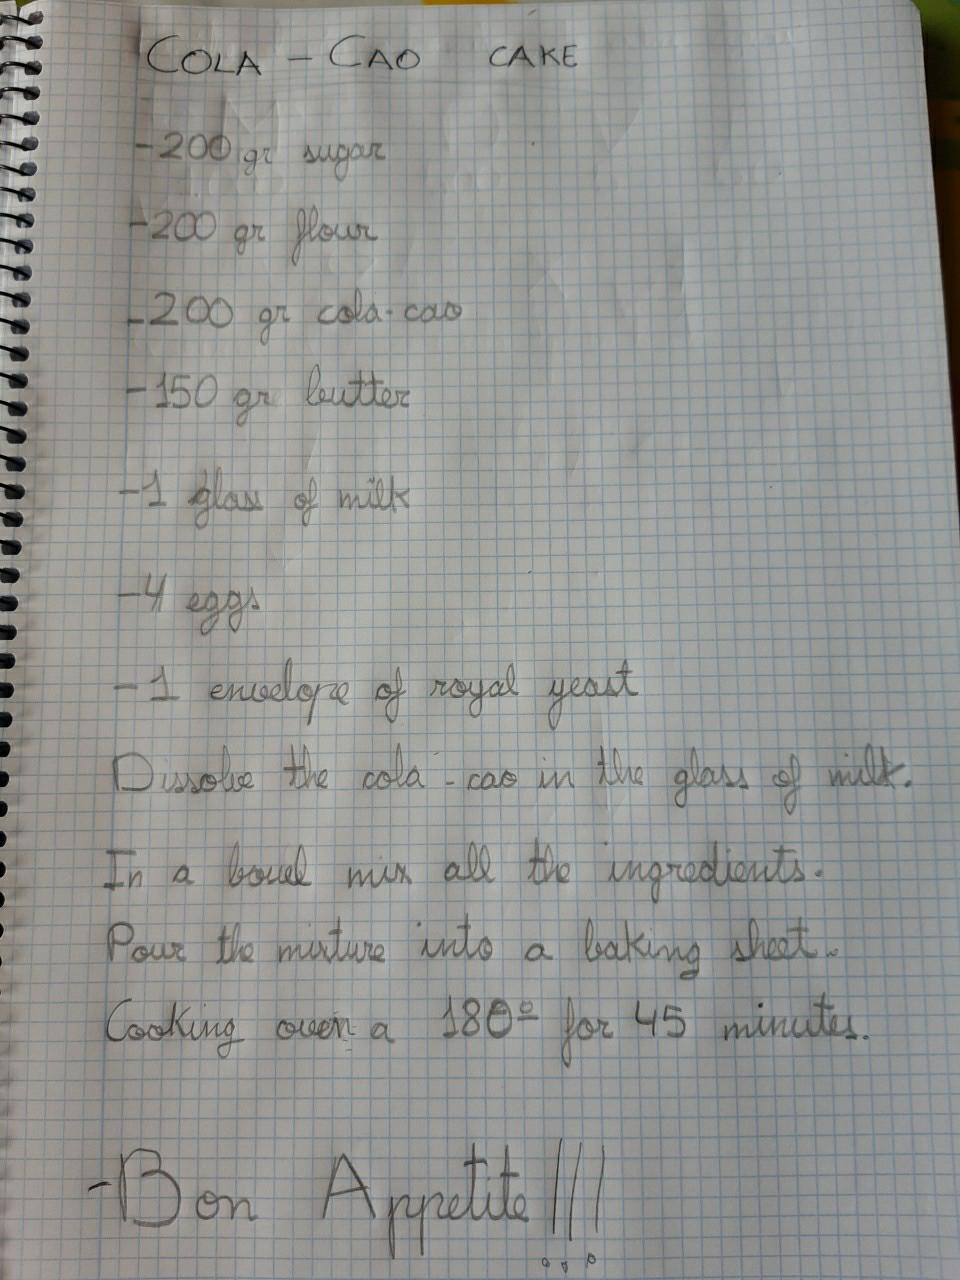 COLA - CAO CAKE
-200 gr sugar
-200 gr flour
-200 gr cola-cao
-150 gr butter
-1 glass of milk
-4 eggs
-1 envelope of royal yeast
Dissolve the cola-cao in the glass of milk.
In a bowl mix all the ingredients.
Pour the mixture into a baking sheet.
Cooking oven a 180º for 45 minutes.
-Bon Appetite!!!